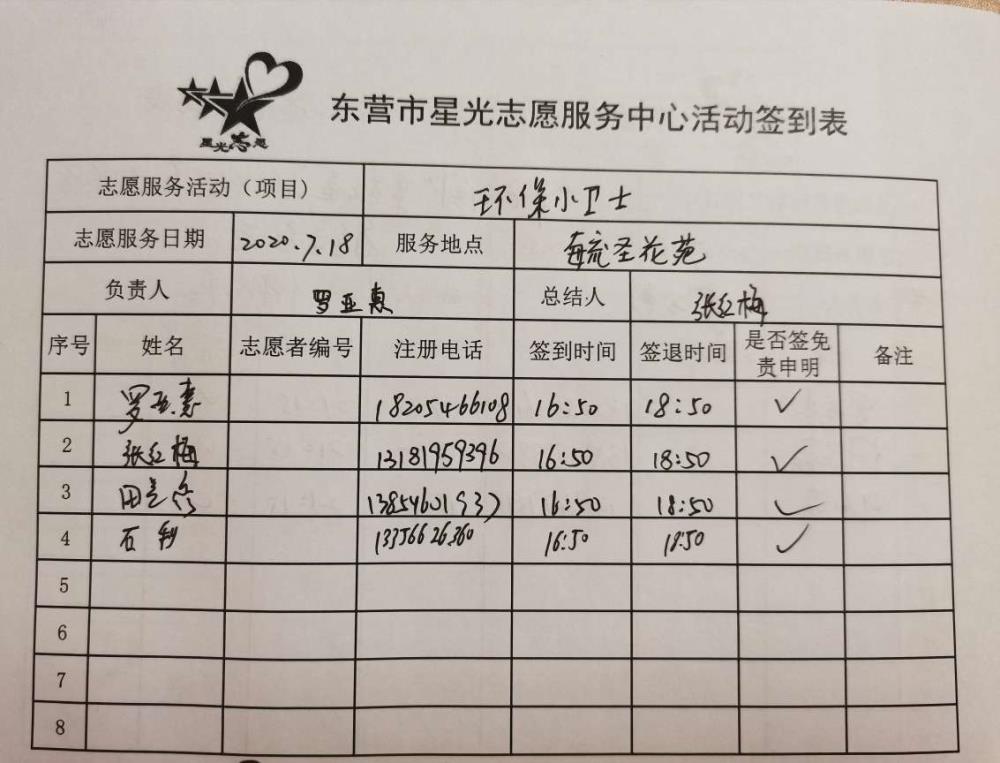 星光志愿
东营市星光志愿服务中心活动签到表
志愿服务活动（项目） 环保小卫士
志愿服务日期 2020.7.18 服务地点 圣花苑
负责人 罗亚惠 总结人 张红梅
序号 姓名 志愿者编号 注册电话 签到时间 签退时间 是否签免责申明 备注
1 罗亚惠 18205466108 16:50 18:50 ✓
2 张红梅 13181959396 16:50 18:50 ✓
3 田 16:50 18:50 ✓
4 石 13356626360 16:50 18:50 ✓
5
6
7
8